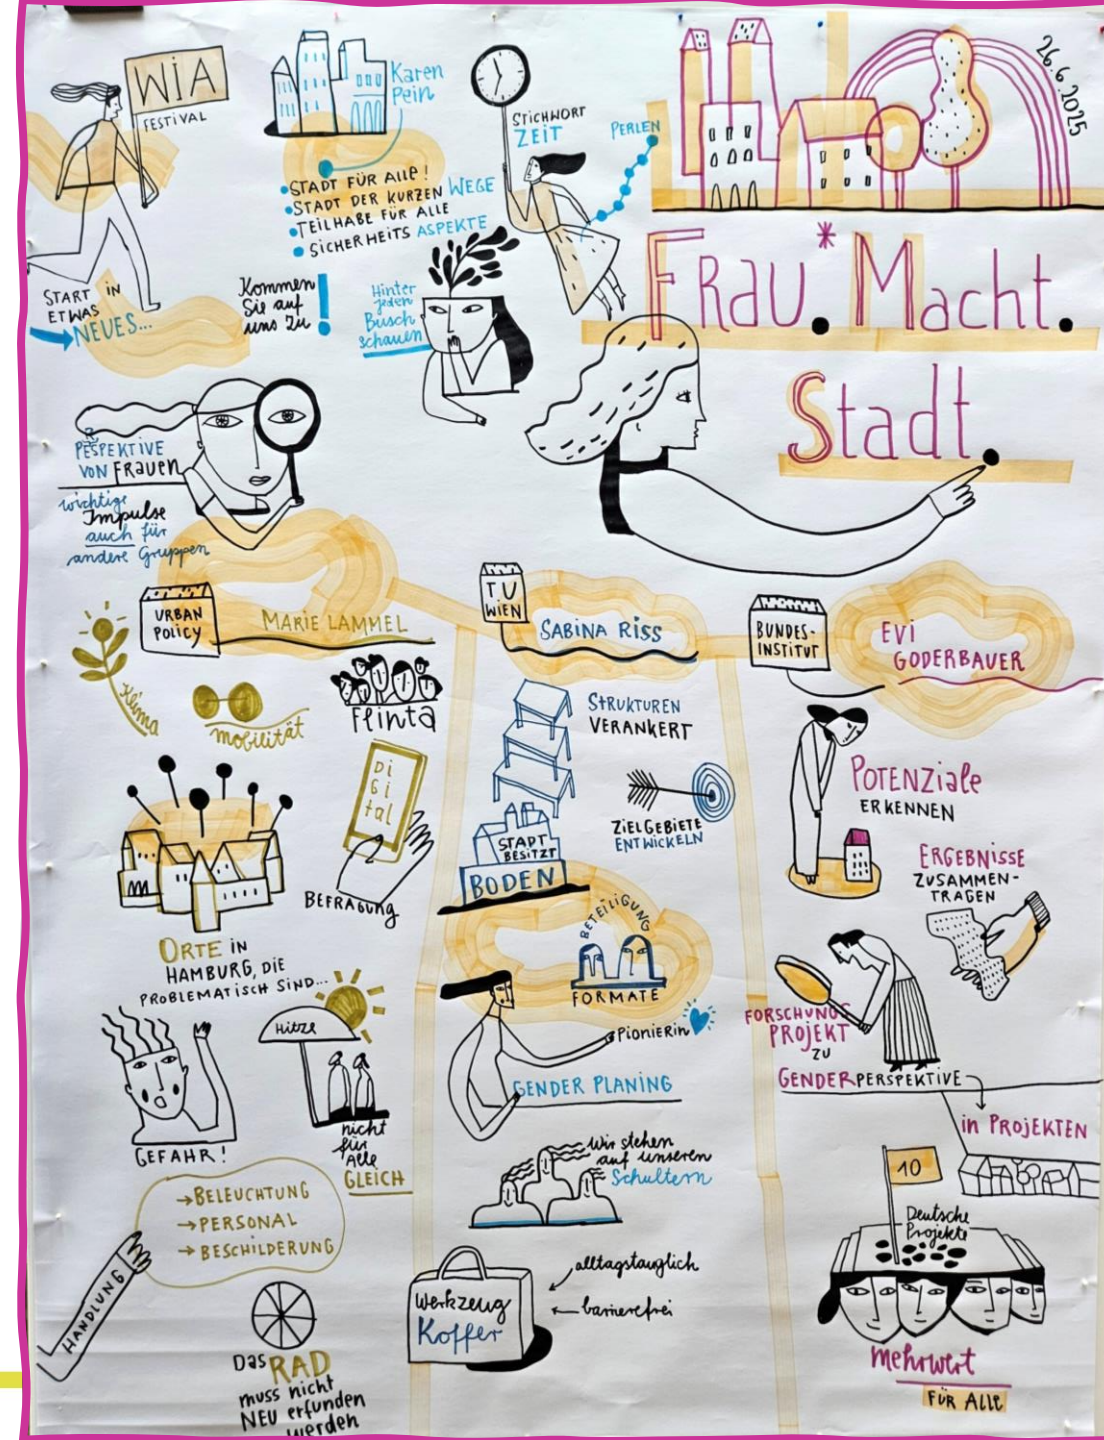 WIA
FESTIVAL
START IN
ETWAS
NEUES...
Karen
Pein
STADT FÜR ALLE!
STADT DER KURZEN WEGE
TEILHABE FÜR ALLE
SICHERHEITS ASPEKTE
Kommen
Sie auf
uns zu!
STICHWORT
ZEIT
PERLEN
Hinter
jeden
Busch
schauen
26.6.2025
FRau.* Macht.
Stadt.
PERSPEKTIVE
VON FRAUEN
wichtige
Impulse
auch für
andere Gruppen
URBAN
POLICY
MARIE LAMMEL
Klima
mobilität
Flinta
Di
Gi
tal
BEFRAGUNG
ORTE IN
HAMBURG, DIE
PROBLEMATISCH SIND...
GEFAHR!
Hitze
nicht
für
Alle
GLEICH
→BELEUCHTUNG
→PERSONAL
→BESCHILDERUNG
HANDLUNG
Das RAD
muss nicht
NEU erfunden
werden
TU
WIEN
SABINA RISS
STRUKTUREN
VERANKERT
ZIELGEBIETE
ENTWICKELN
STADT
BESITZT
BODEN
BETEILIGUNG
FORMATE
PIONIERIN
GENDER PLANING
Wir stehen
auf unseren
Schultern
Werkzeug
Koffer
alltagstauglich
barrierefrei
BUNDES-
INSTITUT
EVI
GODERBAUER
POTENZIALE
ERKENNEN
ERGEBNISSE
ZUSAMMEN-
TRAGEN
FORSCHUNGS
PROJEKT
ZU
GENDERPERSPEKTIVE
in PROJEKTEN
10
Deutsche
Projekte
Mehrwert
FÜR ALLE